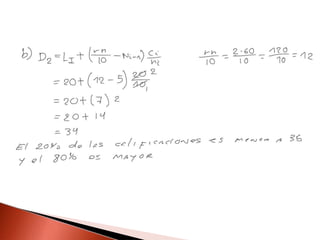 b) D₂ = L_I + (rn/10 - N_{i-1}) Ci/ni    rn/10 = 2·60/10 = 120/10 = 12
= 20 + (12 - 5) 20/10 2 1
= 20 + (7) 2
= 20 + 14
= 34
El 20% de las calificaciones es menor a 36
y el 80% es mayor